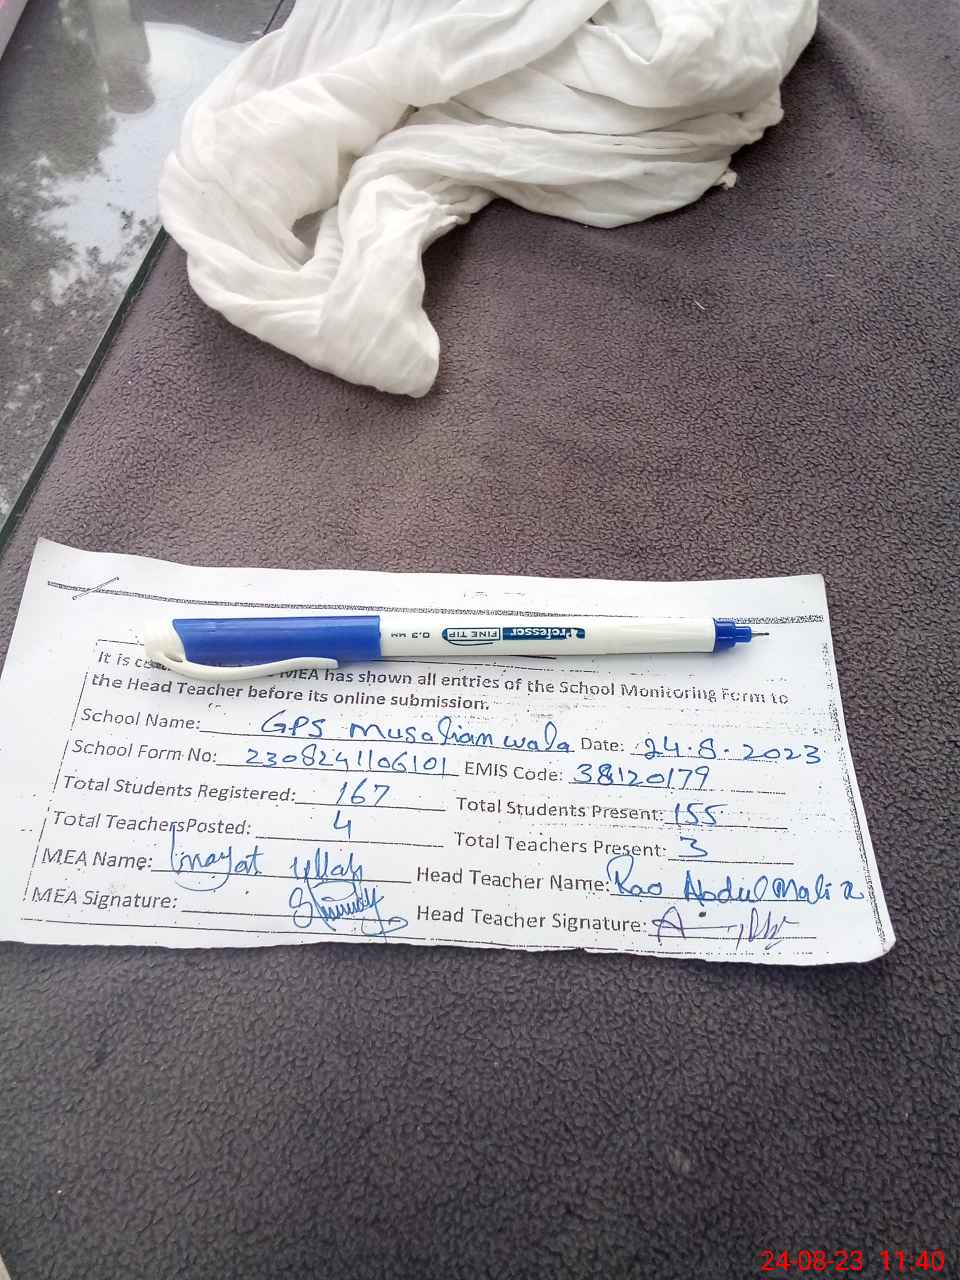 Professor FINE TIP 0.3 MM
It is MEA has shown all entries of the School Monitoring Form to
the Head Teacher before its online submission.
School Name: GPS Musalian wala Date: 24.8.2023
School Form No: 2308241106101 EMIS Code: 38120179
Total Students Registered: 167 Total Students Present: 155
Total TeachersPosted: 4 Total Teachers Present: 3
MEA Name: Inayat ullah Head Teacher Name: Rao Abdul Malik
MEA Signature: Head Teacher Signature:
24-08-23 11:40